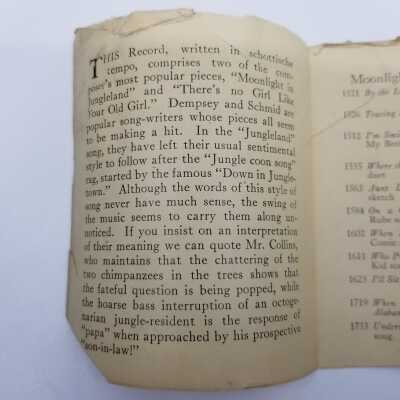 THIS Record, written in schottische
tempo, comprises two of the com-
poser's most popular pieces, "Moonlight in
Jungleland" and "There's no Girl Like
Your Old Girl." Dempsey and Schmid are
popular song-writers whose pieces all seem
to be making a hit. In the "Jungleland"
song, they have left their usual sentimental
style to follow after the "Jungle coon song"
rag, started by the famous "Down in Jungle-
town." Although the words of this style of
song never have much sense, the swing of
the music seems to carry them along un-
noticed. If you insist on an interpretation
of their meaning we can quote Mr. Collins,
who maintains that the chattering of the
two chimpanzees in the trees shows that
the fateful question is being popped, while
the hoarse bass interruption of an octoge-
narian jungle-resident is the response of
"papa" when approached by his prospective
"son-in-law!"
Moonligh
1521 By the L
1526 Teasing
1512 I'm Si
My Bes
1535 Where
duet
1563 Aunt
sketch
1584 On a
Rube s
1602 When
Comic
1611 Who P
Kid so
1623 I'll Sh
1719 When
Alaba
1733 Under
song